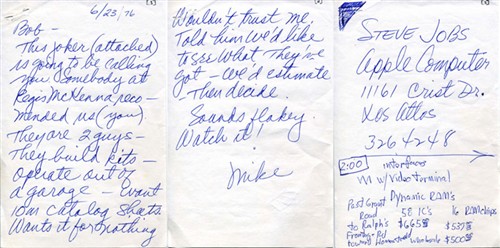 6/23/76
[1]
Bob -
This joker (attached)
is going to be calling
you (Somebody at
Regis McKenna reco-
mended us (you)
They are 2 guys -
they build kits -
operate out of
a garage - want
our catalog sheets
Wants it for nothing
[2]
Wouldn't trust me.
Told him we'd like
to see what they've
got - we'd estimate
- Then decide.
Sounds flakey.
Watch it!
Mike
[3]
STEVE JOBS
Apple Computer
11161 Crist Dr.
Los Altos
326 4248
2:00
interface
w/ Video terminal
Page
Road
to Ralph's
toward
Dynamic RAM's
58 IC's
16 RAM chips
$665
$537
$500